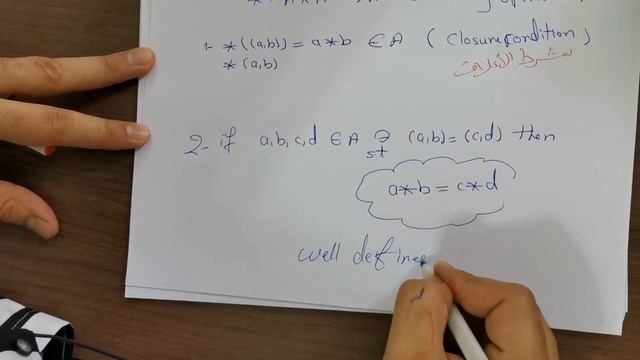 1- *((a,b)) = a*b ∈A (Closure condition)
*(a,b)
شرط الأغلاق
2- if a,b,c,d ∈A ∋ (a,b)=(c,d) then
st
a*b = c*d
well define